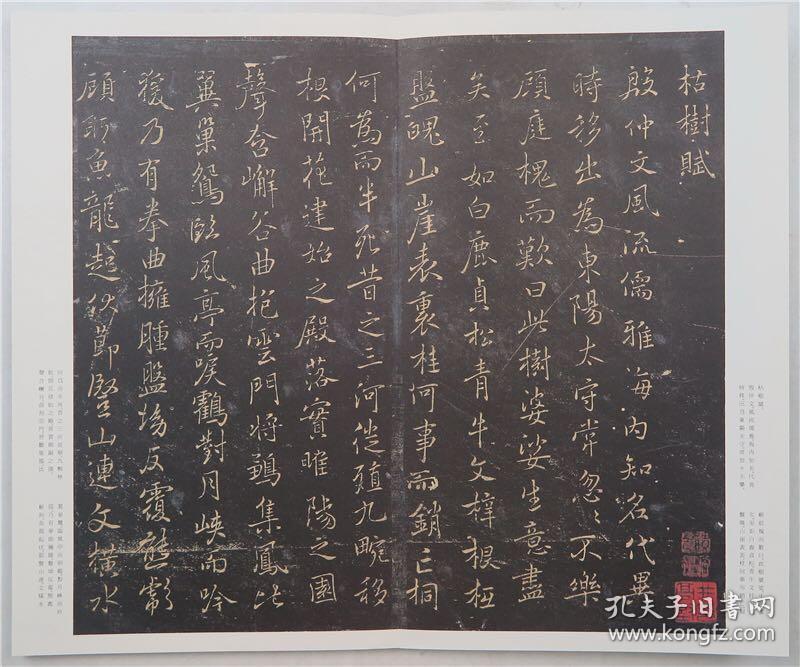 枯樹賦
殷仲文風流儒雅海內知名代異
時移出為東陽太守常忽〻不樂
顧庭槐而歎曰此樹婆娑生意盡
矣至如白鹿貞松青牛文梓根柢
盤魄山崖表裏桂何事而銷亡桐
何為而半死昔之三河徙殖九畹移
根開花建始之殿落實睢陽之園
聲含嶰谷曲抱雲門將鶵集鳳比
翼巢鴛臨風亭而唳鶴對月峽而吟
猨乃有拳曲擁腫盤坳反覆熊彪
顧盼魚龍起伏節竪山連文橫水
孔夫子旧书网
www.kongfz.com